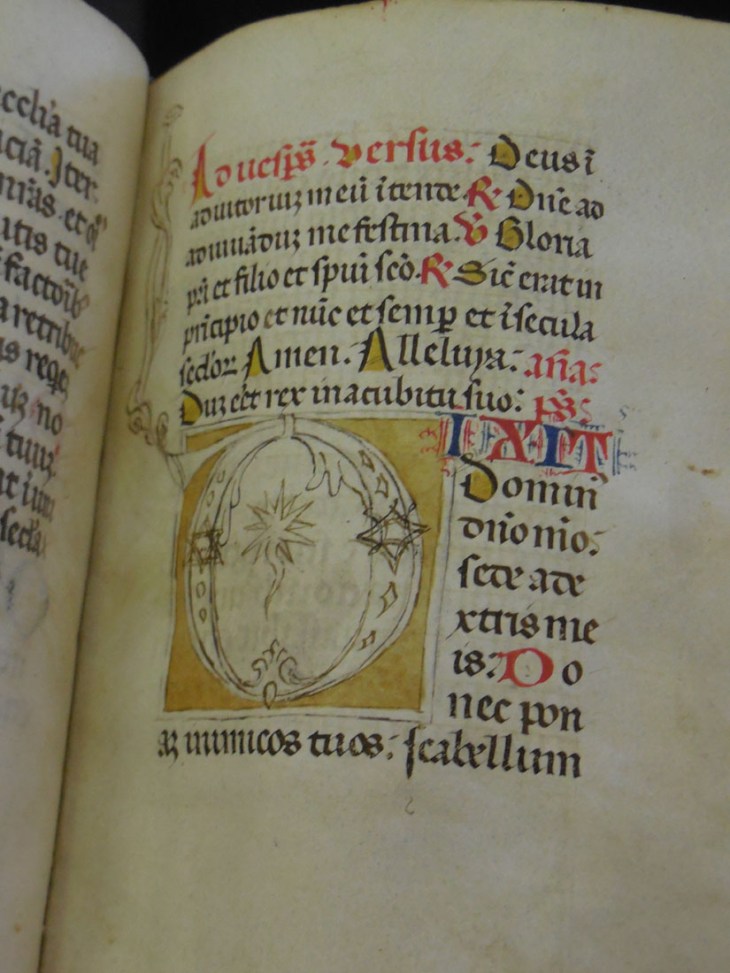 cclia tua
ciā. Iter.
nīas. et oī
itis tue
factoīb
a retribue
us rege,
uʒ no
tuuʒ.
at
secla
Ad uesp̄s. versus: Deus ī
adiutoriuʒ meū ītende. ℟ Dn̄e ad
adiuuāduʒ me festina. ℣ Gloria
pr̄i et filio et spūi sc̄o. ℟ Sic̄ erat in
principio et nūc et semꝑ et ī secula
seclorꝫ Amen. Alleluya: an̄a:
Duʒ eēt rex in acubitu suo: ps̄
DIXIT
Domin̄
dn̄o m̄o:
sede a de
xtris me
is: Do
nec pon
aʒ inimicos tuos: scabellum